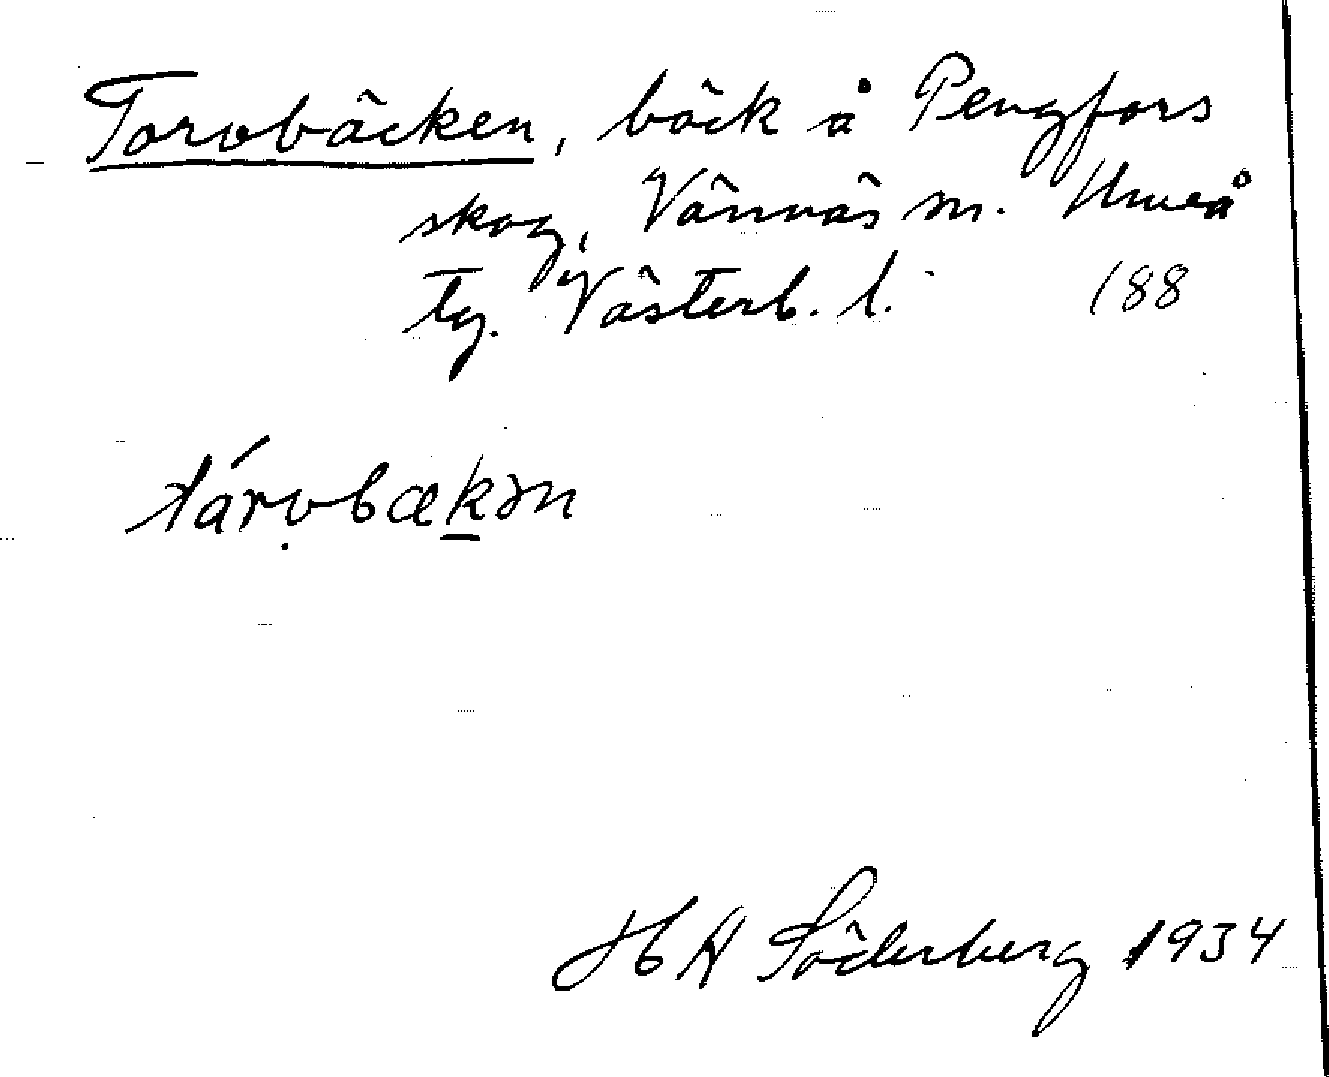 Torvbäcken, bäck å Pengfors
skog, Vännäs sn. Umeå
tg. Västerb. l. 188
tárṿbæḵən
H A Söderberg 1934